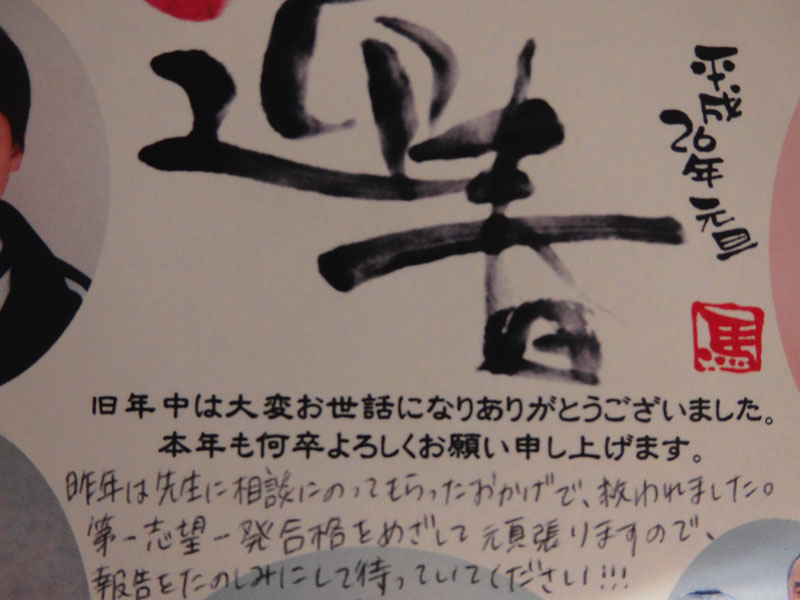 迎春
平成
26年
元旦
馬
旧年中は大変お世話になりありがとうございました。
本年も何卒よろしくお願い申し上げます。
昨年は先生に相談にのってもらったおかげで、救われました。
第一志望一発合格をめざして頑張りますので、
報告をたのしみにして待っていてください!!!